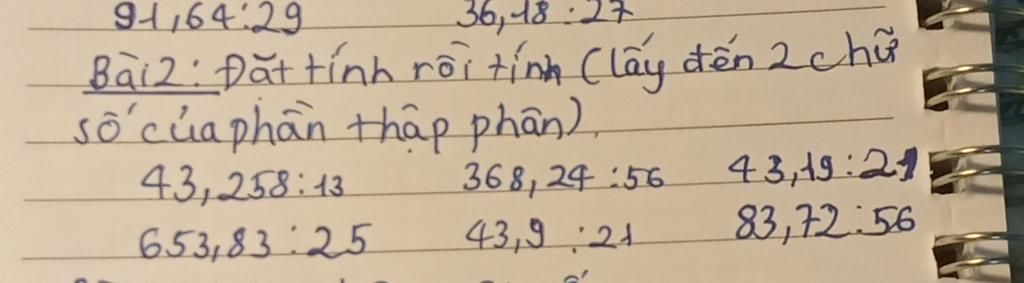 91,64:29 36,18:27
Bài 2: Đặt tính rồi tính (lấy đến 2 chữ
số của phần thập phân).
43,258:13 368,24:56 43,19:21
653,83:25 43,9:21 83,72:56